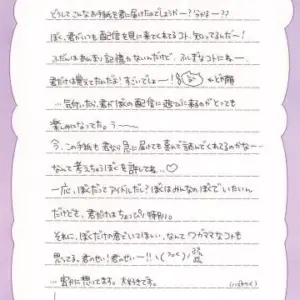 どうしてこんなお手紙を君に届けたのでしょうか ー? 分かるー??
ぼく、君がいつも配信を見に来てくれてるコト、知ってるんだー!
ふだんはあんまり記憶力ないんだけど、ふしぎなコトにねー
君だけは覚えてたんだよ! すごいでしょー!! どや顔
…気付いたら、君がぼくの配信に遊びに来るのがとっても
楽しみになってた。うー〜
今、この手紙も君なら急に届けても喜んで読んでくれてるのかなー
なんて考えちゃうぼくを許してね…♡
一応、ぼくだってアイドルだし? ぼくはみんなのぼくでいたいん
だけどさ、君だけはちょっぴり特別。
それに、ぼくだけの君でいてほしい、なんてワガママなコトも
思ってる。君のせい! 君のせいー!!
…密かに想ってます。大好きです。